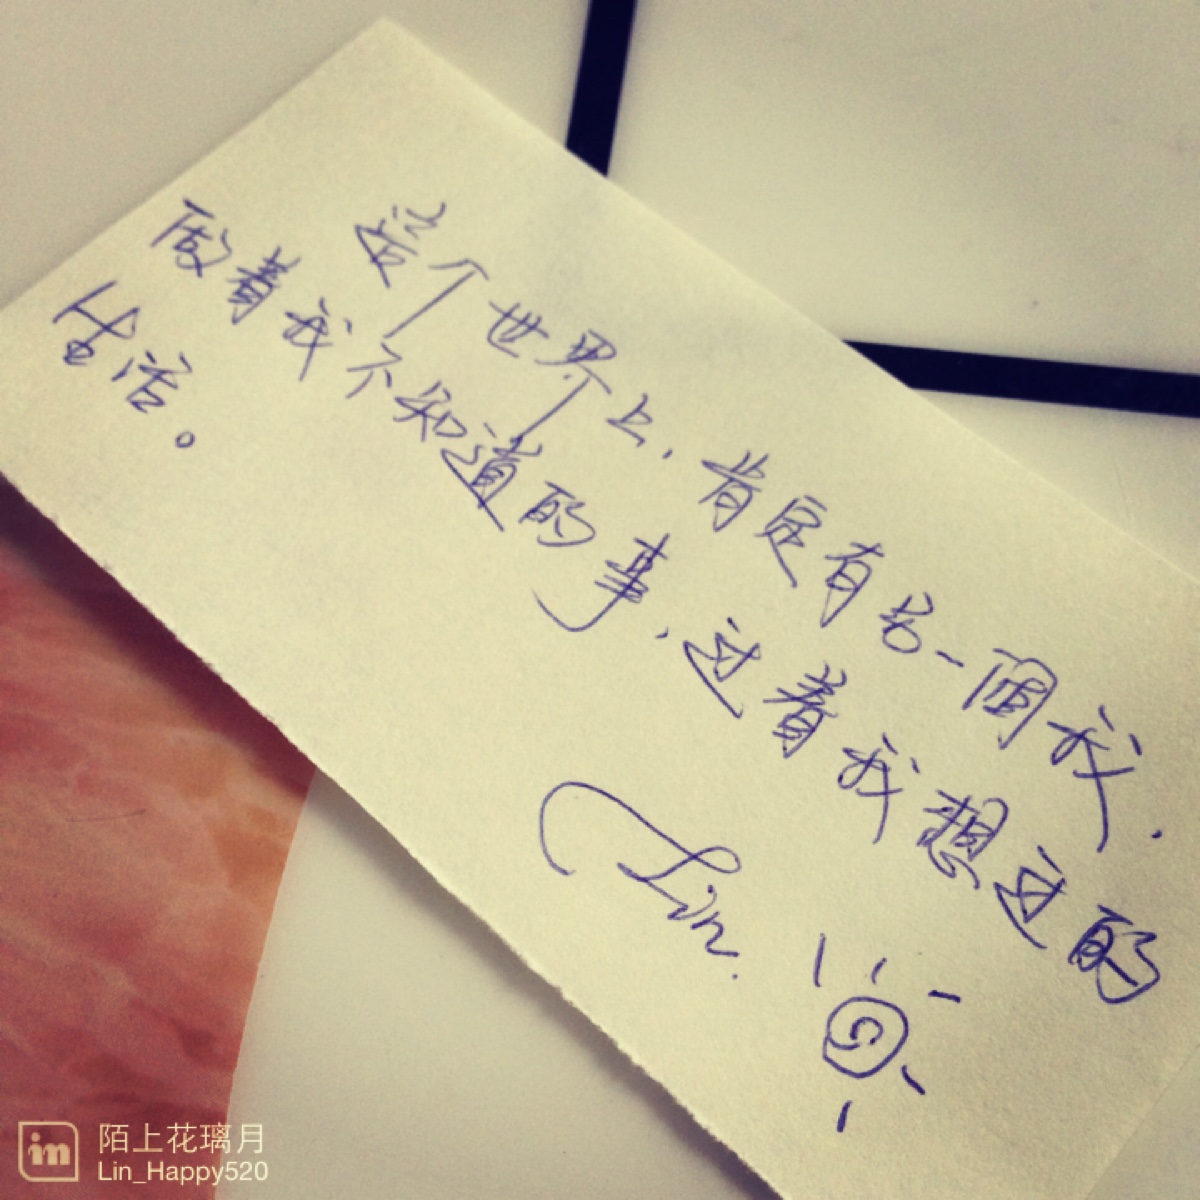 这个世界上，肯定有另一個我，
做着我不知道的事，过着我想过的
生活。
Lin.
陌上花璃月
Lin_Happy520